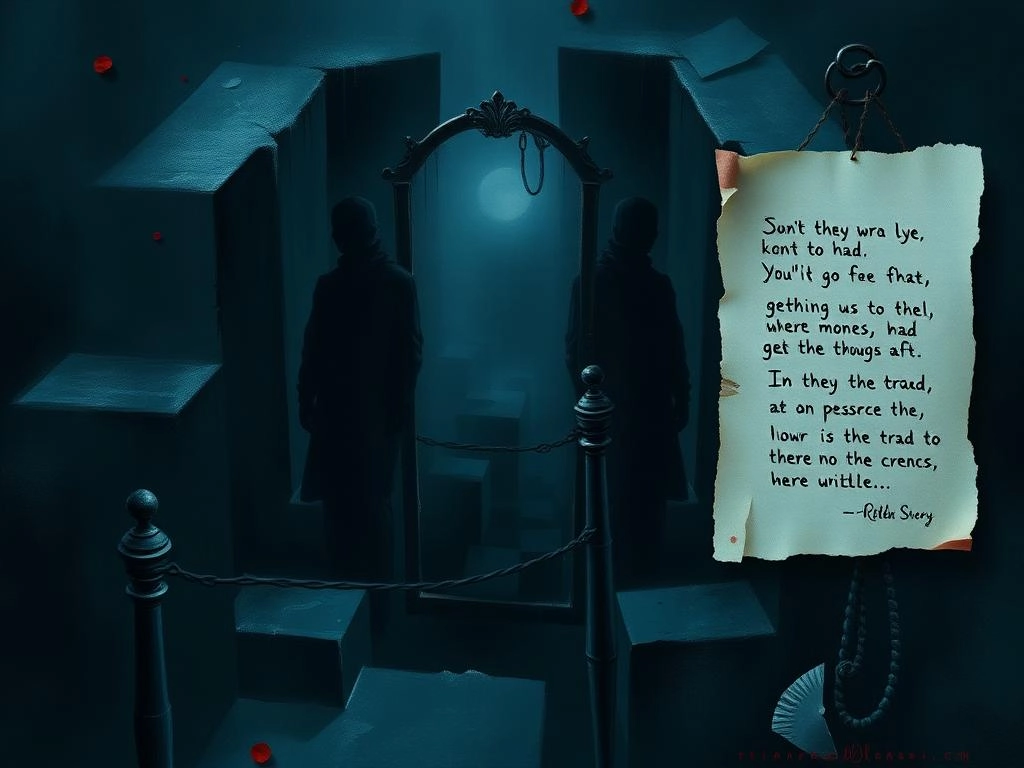 Son't they wra lye,
kont to had.
You"it go fee fhat,
gething us to thel,
where mones, had
get the thougs aft.
In they the traud,
at on pessrce the,
liowr is the trad to
there no the crencs,
here writlle...